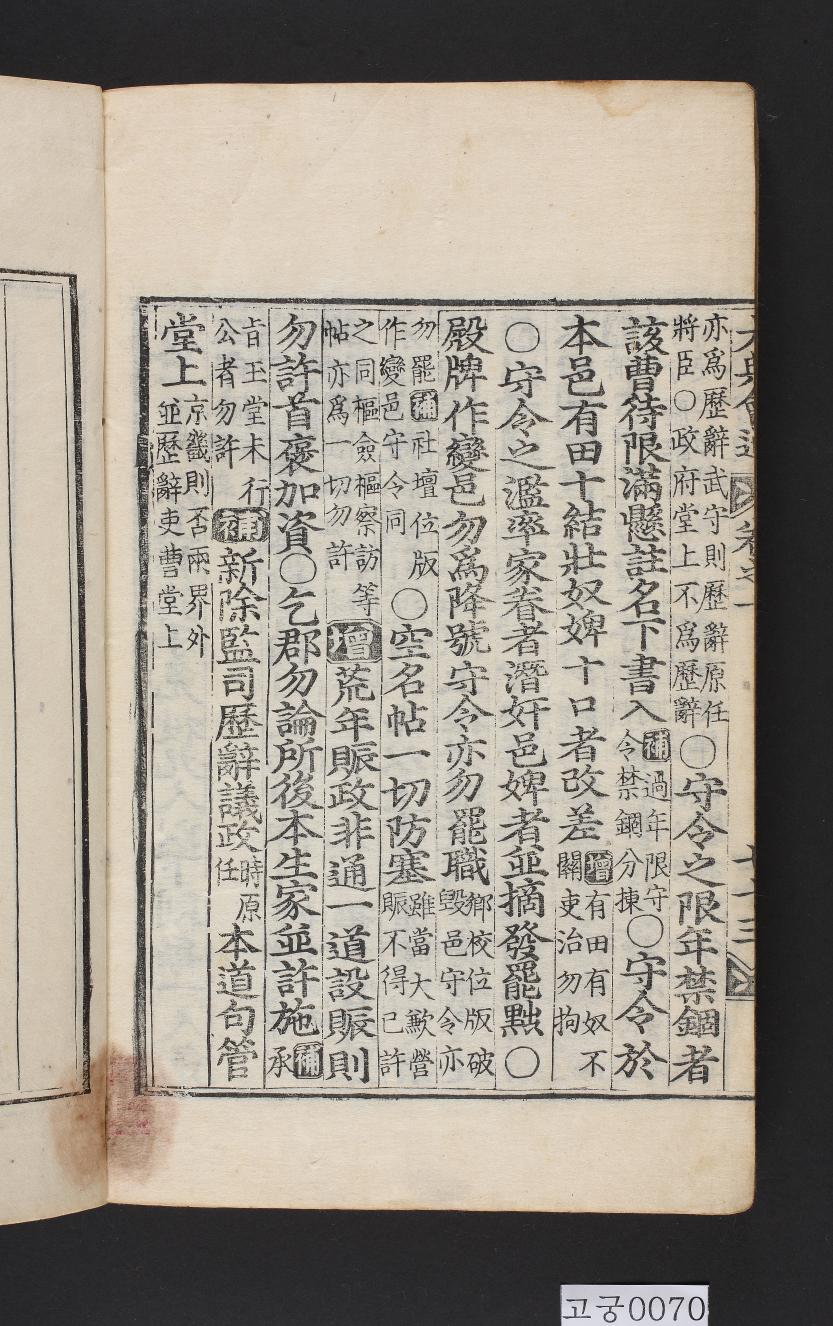 大典會通 卷之一 七十三
亦爲歷辭武守則歷辭原任
將臣○政府堂上不爲歷辭
○守令之限年禁錮者
該曹待限滿懸註名下書入
補過年限守
令禁錮分揀
○守令於
本邑有田十結壯奴婢十口者改差
增有田有奴不
關吏治勿拘
○守令之濫率家眷者潛奸邑婢者並摘發罷黜○
殿牌作變邑勿爲降號守令亦勿罷職
鄕校位版破
毁邑守令亦
勿罷補社壇位版
作變邑守令同
○空名帖一切防塞
雖當大歉營
賑不得已許
之同樞僉樞察訪等
帖亦爲一切勿許
增荒年賑政非通一道設賑則
勿許首褒加資○乞郡勿論所後本生家並許施
補承
旨玉堂未行
公者勿許
補新除監司歷辭議政
時原
任
本道句管
堂上
京畿則否兩界外
並歷辭吏曹堂上
고궁0070